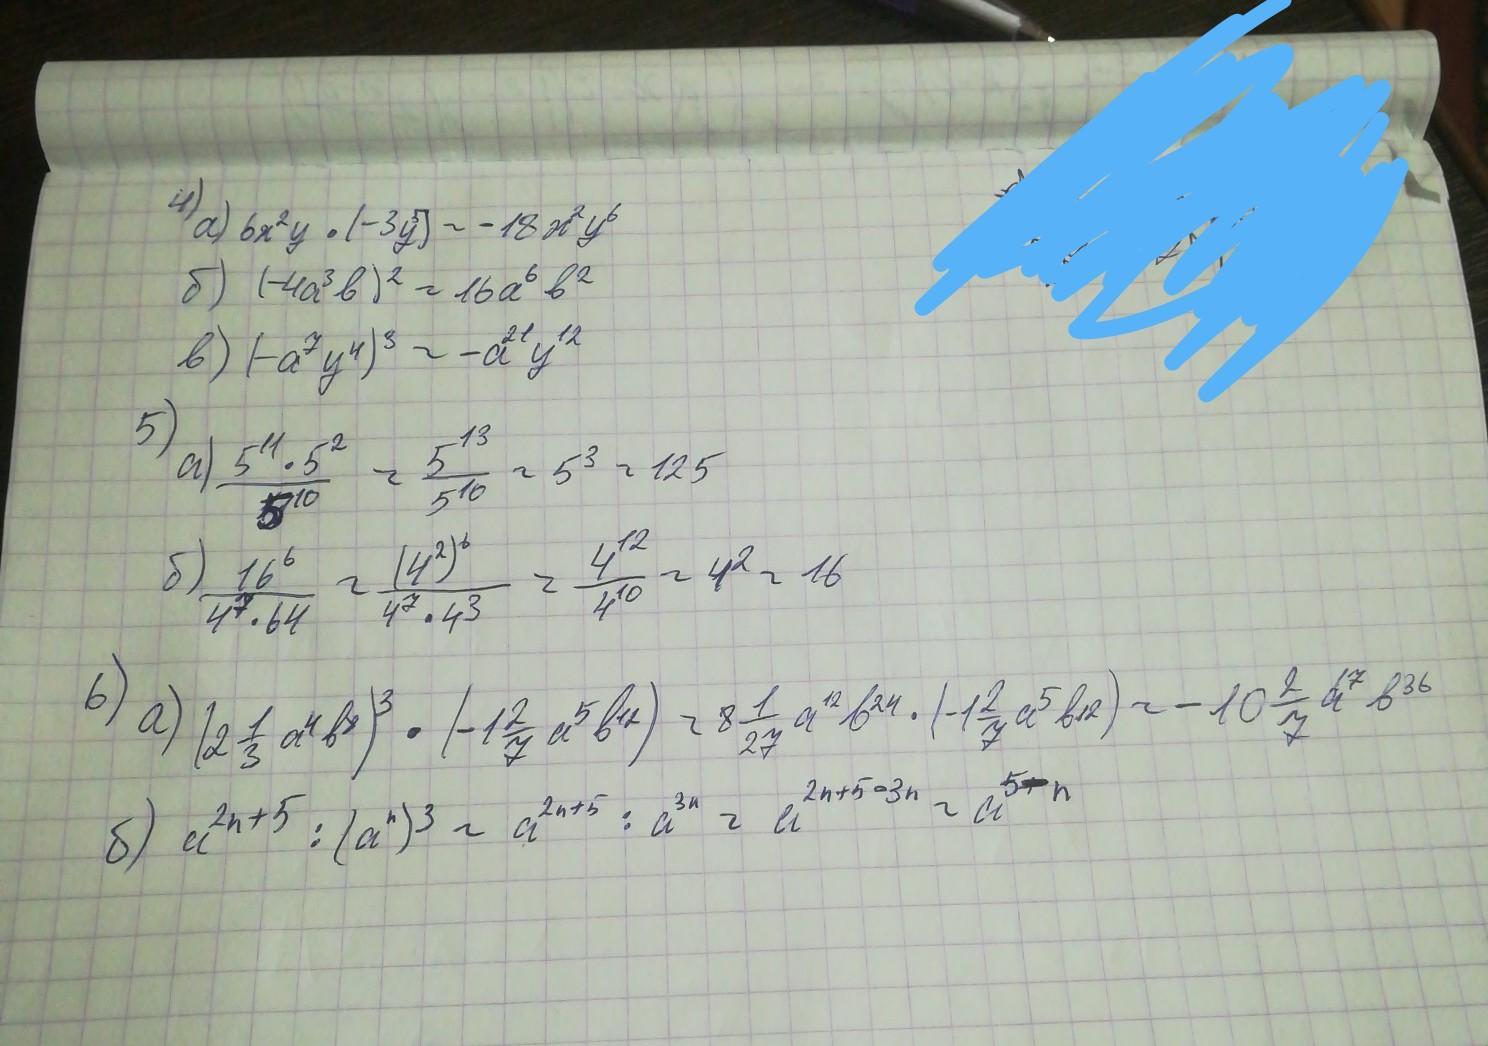 4)
а) 6x²y · (-3y⁵) = -18x²y⁶
б) (-4a³b)² = 16a⁶b²
в) (-a⁷y⁴)³ = -a²¹y¹²
5)
а) 5¹¹·5² / 5¹⁰ = 5¹³ / 5¹⁰ = 5³ = 125
б) 16⁶ / 4⁷·64 = (4²)⁶ / 4⁷·4³ = 4¹² / 4¹⁰ = 4² = 16
6) а) (2 1/3 a⁴b⁸)³ · (-1 2/7 a⁵b¹²) = 8 1/27 a¹²b²⁴ · (-1 2/7 a⁵b¹²) = -10 2/7 a¹⁷b³⁶
б) a²ⁿ⁺⁵ : (aⁿ)³ = a²ⁿ⁺⁵ : a³ⁿ = a²ⁿ⁺⁵⁻³ⁿ = a⁵⁻ⁿ